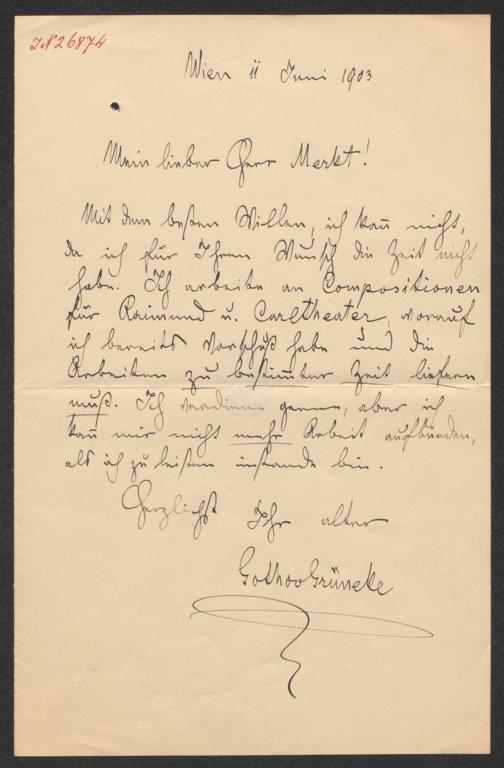 IN 26874
Wien 11 Juni 1903
Mein lieber Herr Merkt!
Mit dem beßten Willen, ich kan̄ nicht,
da ich für Ihren Wunsch die Zeit nicht
habe. Ich arbeite an Compositionen
für Raimund u. Carltheater, worauf
ich bereits Vorschuß habe und die
Arbeiten zu bestim̄ter Zeit liefern
muß. Ich verdiene gerne, aber ich
kan̄ mir nicht mehr Arbeit aufbürden,
als ich zu leisten imstande bin.
Herzlichst Ihr alter
Gothov Grüneke